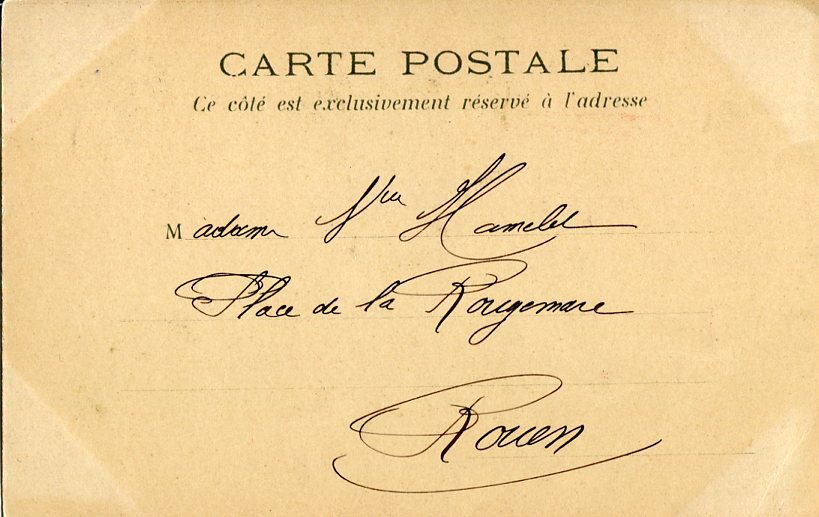 CARTE POSTALE
Ce côté est exclusivement réservé à l'adresse
Madame Vve Hamelet
Place de la Rougemare
Rouen